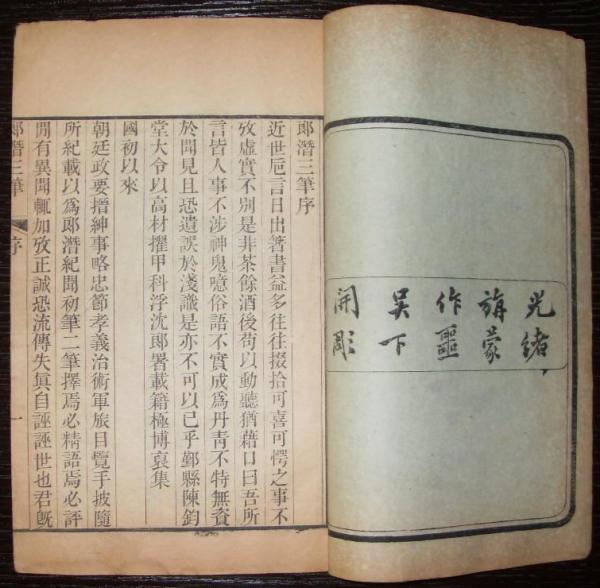 光緒
旃蒙
作噩
吳下
開彫
郎潛三筆序
近世卮言日出箸書益多往往掇拾可喜可愕之事不
攷虛實不別是非茶餘酒後苟以動聽猶藉口曰吾所
言皆人事不涉神鬼噫俗語不實成爲丹青不特無資
於聞見且恐遺誤於淺識是亦不可以已乎鄞縣陳鈞
堂大令以高材擢甲科浮沈郎署載籍極博裒集
國初以來
朝廷政要搢紳事略忠節孝義治術軍旅目覽手披隨
所紀載以爲郎潛紀聞初筆二筆擇焉必精語焉必詳
閒有異聞輒加攷正誠恐流傳失眞自誣誣世也君旣
郎潛三筆 序 一